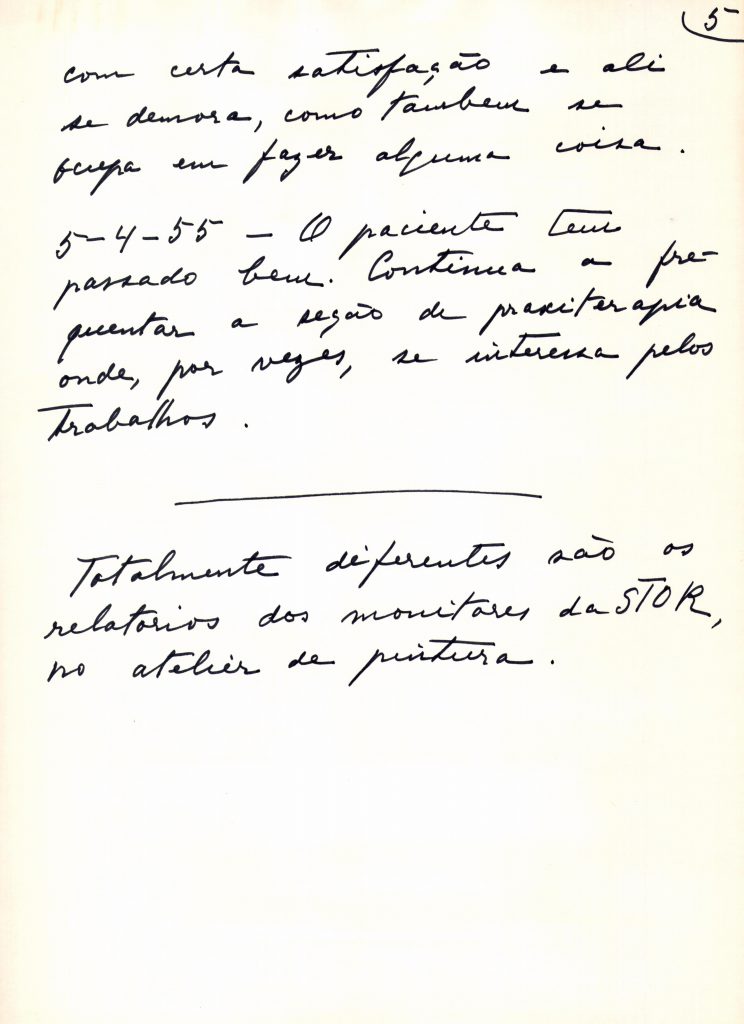 5
com certa satisfação e ali
se demora, como tambem se
ocupa em fazer alguma coisa.
5-4-55 — O paciente tem
passado bem. Continua a fre-
quentar a seção de praxiterapia
onde, por vezes, se interessa pelos
trabalhos.
Totalmente diferentes são os
relatorios dos monitores da STOR,
no atelier de pintura.